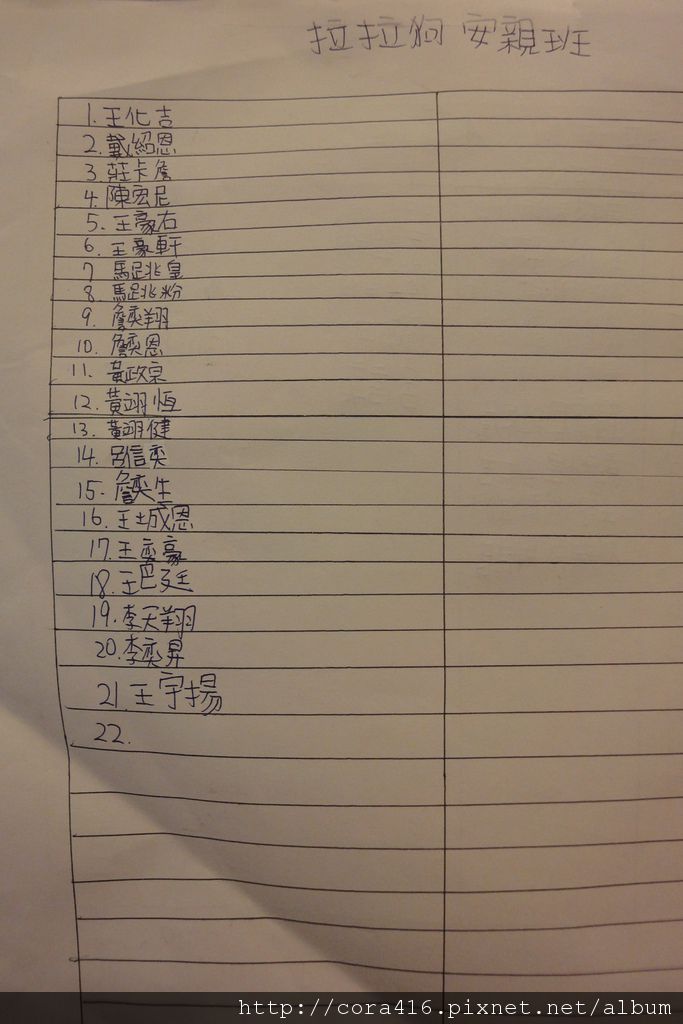 拉拉狗 安親班
1. 王化吉
2. 戴紹恩
3. 莊卡詹
4. 陳宏尼
5. 王豪右
6. 王豪軒
7 馬跳皇
8. 馬跳粉
9. 詹奕翔
10. 詹奕恩
11. 黃政宗
12. 黃翊恆
13. 黃翊健
14. 呂信奕
15. 詹奕生
16. 王城恩
17. 王奕豪
18. 王巴廷
19. 李天翔
20. 李奕昇
21. 王宇揚
22.
http://cora416.pixnet.net/album